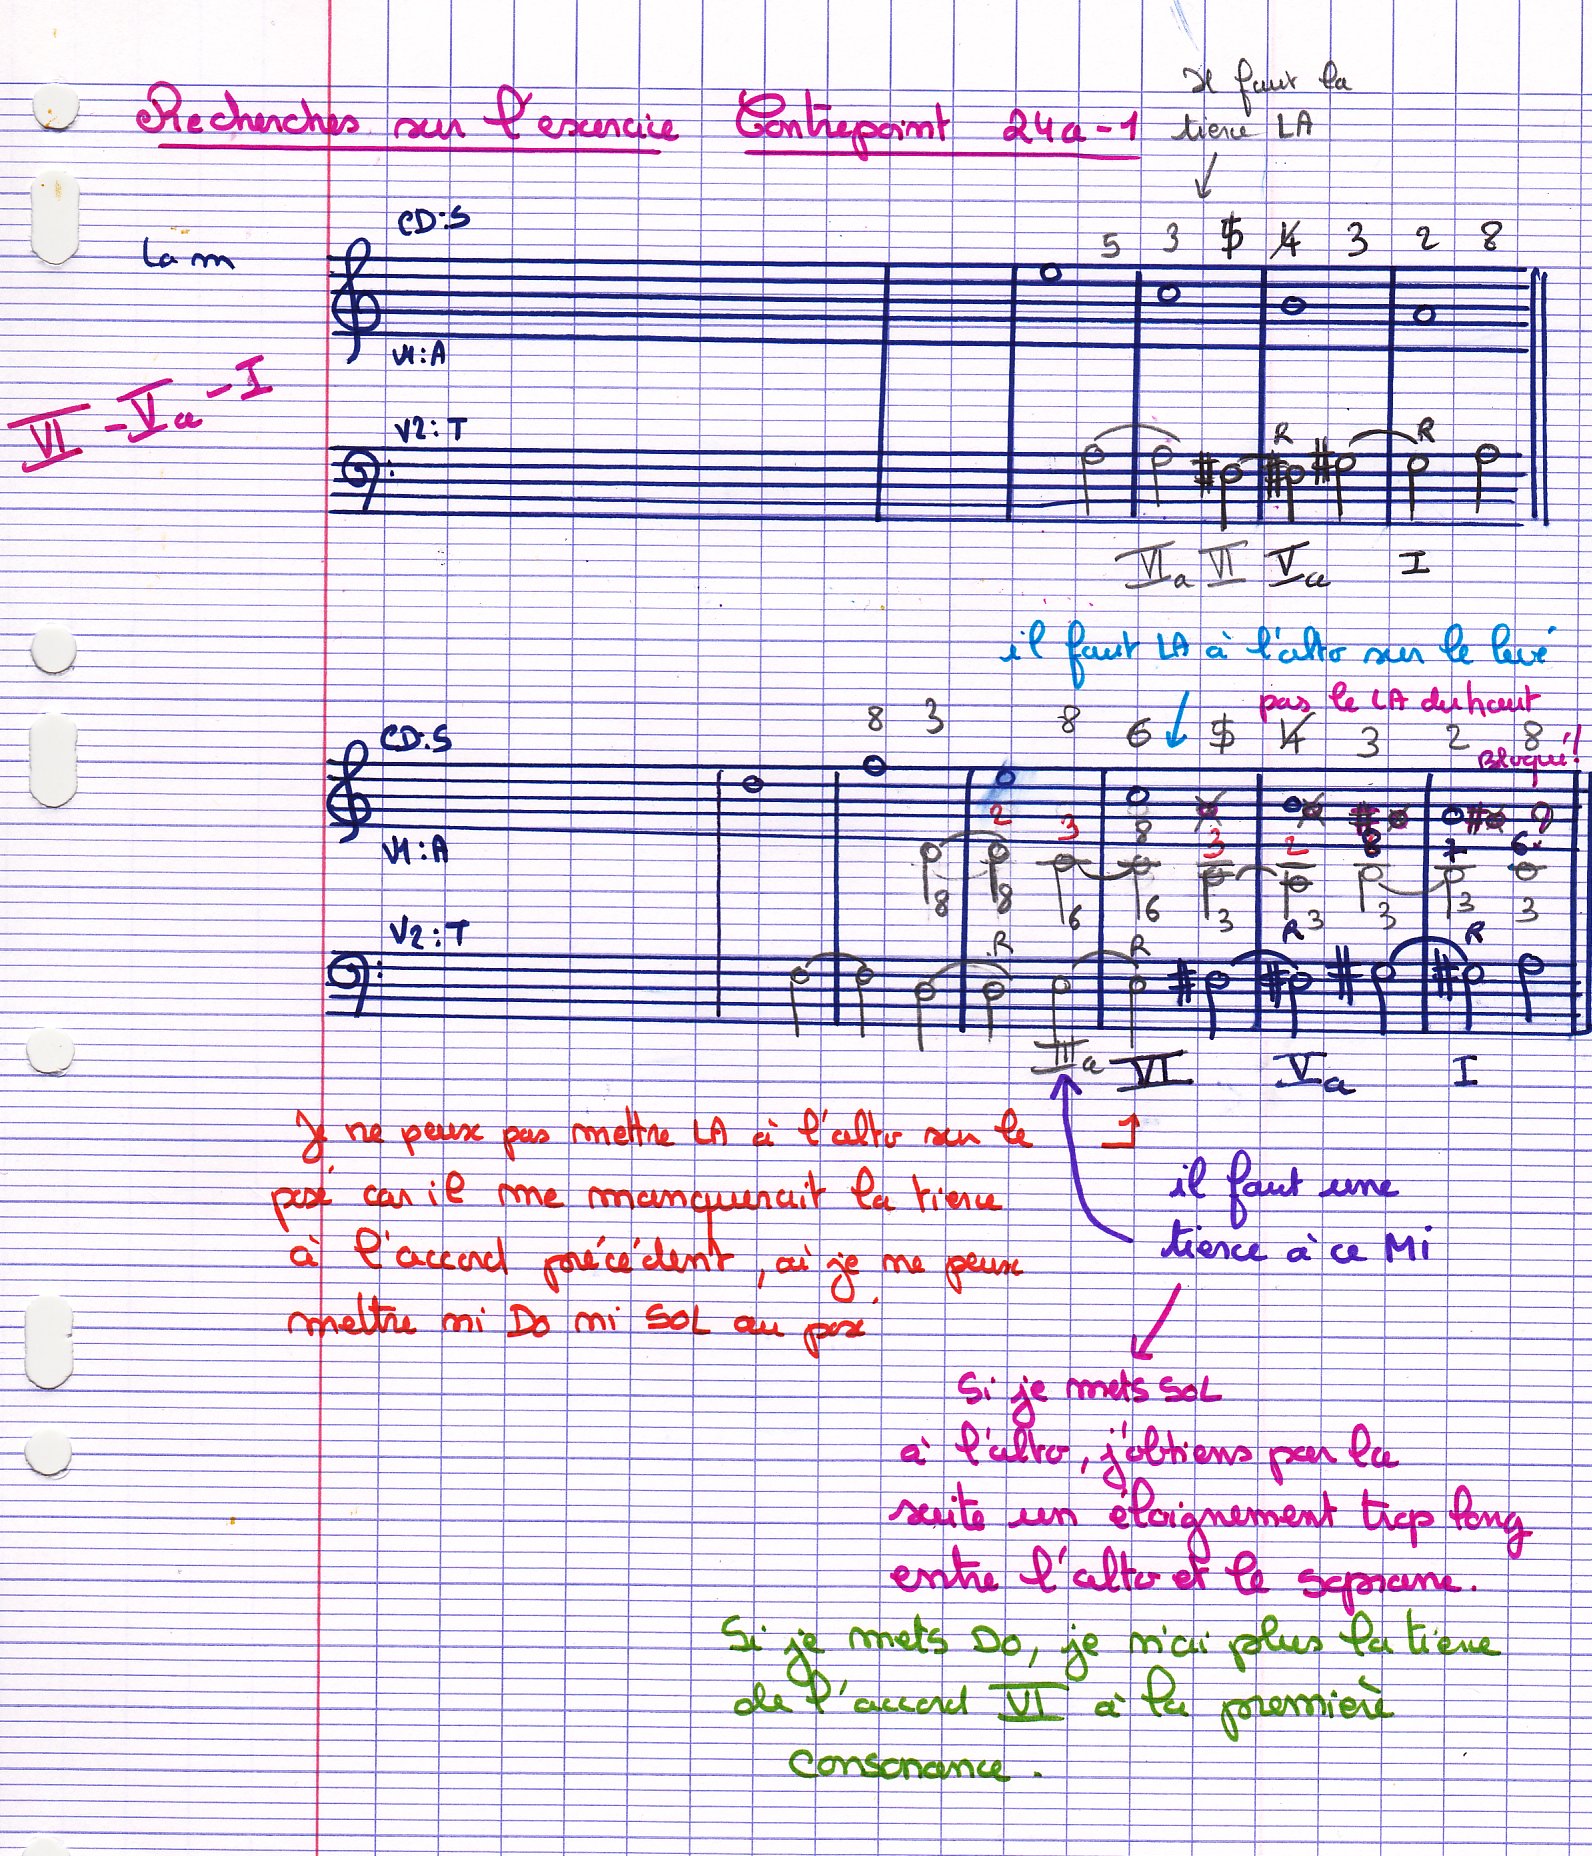 il faut la
tierce LA
Recherches sur l'exercice Contrepoint 24a-1
CD:S
5 3 5 4 3 2 8
La m
V1:A
VI - Va - I
V2:T
R R
VIa VI Va I
il faut LA à l'alto sur le levé
pas le LA du haut
8 3 8 6 5 4 3 2 8
Bloqué!
CD:S
2 3 8 3 2 8 7 6
V1:A
8 8 6 6 3 3 3 3 3
V2:T
R R R R
IIIa VI Va I
Je ne peux pas mettre LA à l'alto sur le
posé car il me manquerait la tierce
à l'accord précédent, où je ne peux
mettre ni Do ni SOL au posé
il faut une
tierce à ce Mi
Si je mets SOL
à l'alto, j'obtiens par la
suite un éloignement trop long
entre l'alto et le soprane.
Si je mets Do, je n'ai plus la tierce
de l'accord VI à la première
consonance.